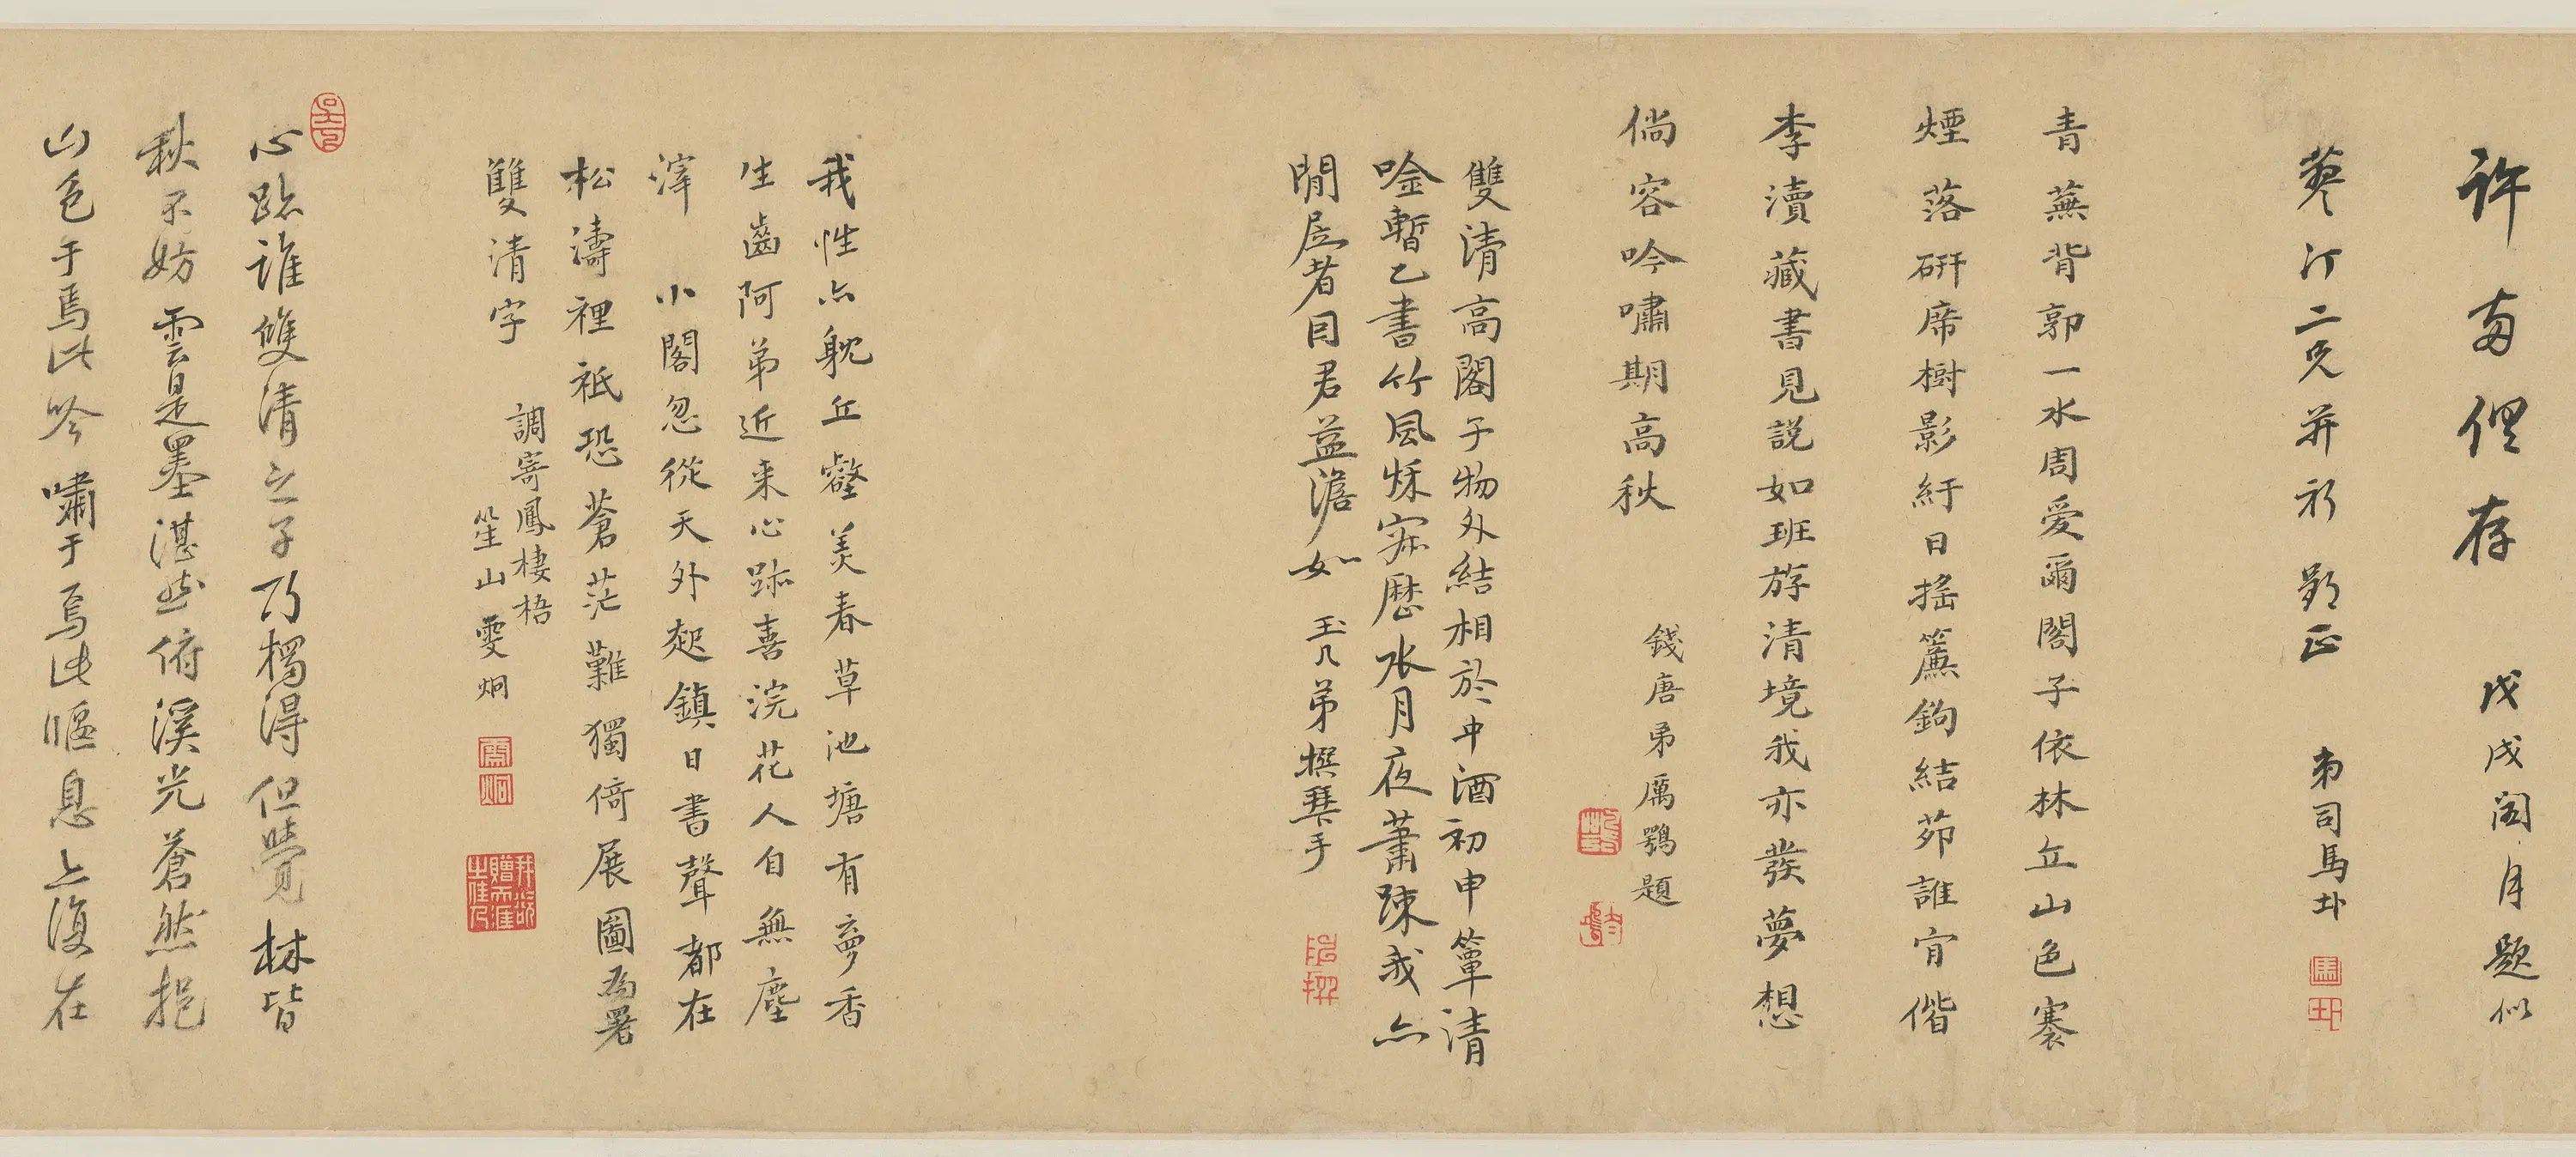 許安俚存 戊戌閏月題似
蓼汀二兄并祈郢正 弟司馬
青蕪背郭一水周愛爾閣子依林丘山色褰
煙落硏席樹影紆日搖簾鉤結茆誰肎偕
李瀆藏書見説如班斿清境我亦發夢想
倘容吟嘯期高秋
錢唐弟厲鶚題
雙清高閣子物外結相於中酒初申簟清
唫暫乙書竹風秌寂歷水月夜蕭疎我亦
閒居者目君益澹如 玉几弟撰棐手
我性亦躭丘壑美春草池塘有夢香
生齒阿弟近来心跡喜浣花人自無塵
滓 小閣忽從天外起鎮日書聲都在
松濤裡祗恐蒼茫難獨倚展圖為署
雙清字
調寄鳳棲梧
笙山雯炯
心跡誰雙清之子乃獨得但覺林皆
秋不妨雲是墨湛然俯溪光蒼然挹
山色于焉此吟嘯于焉此偃息亦復在